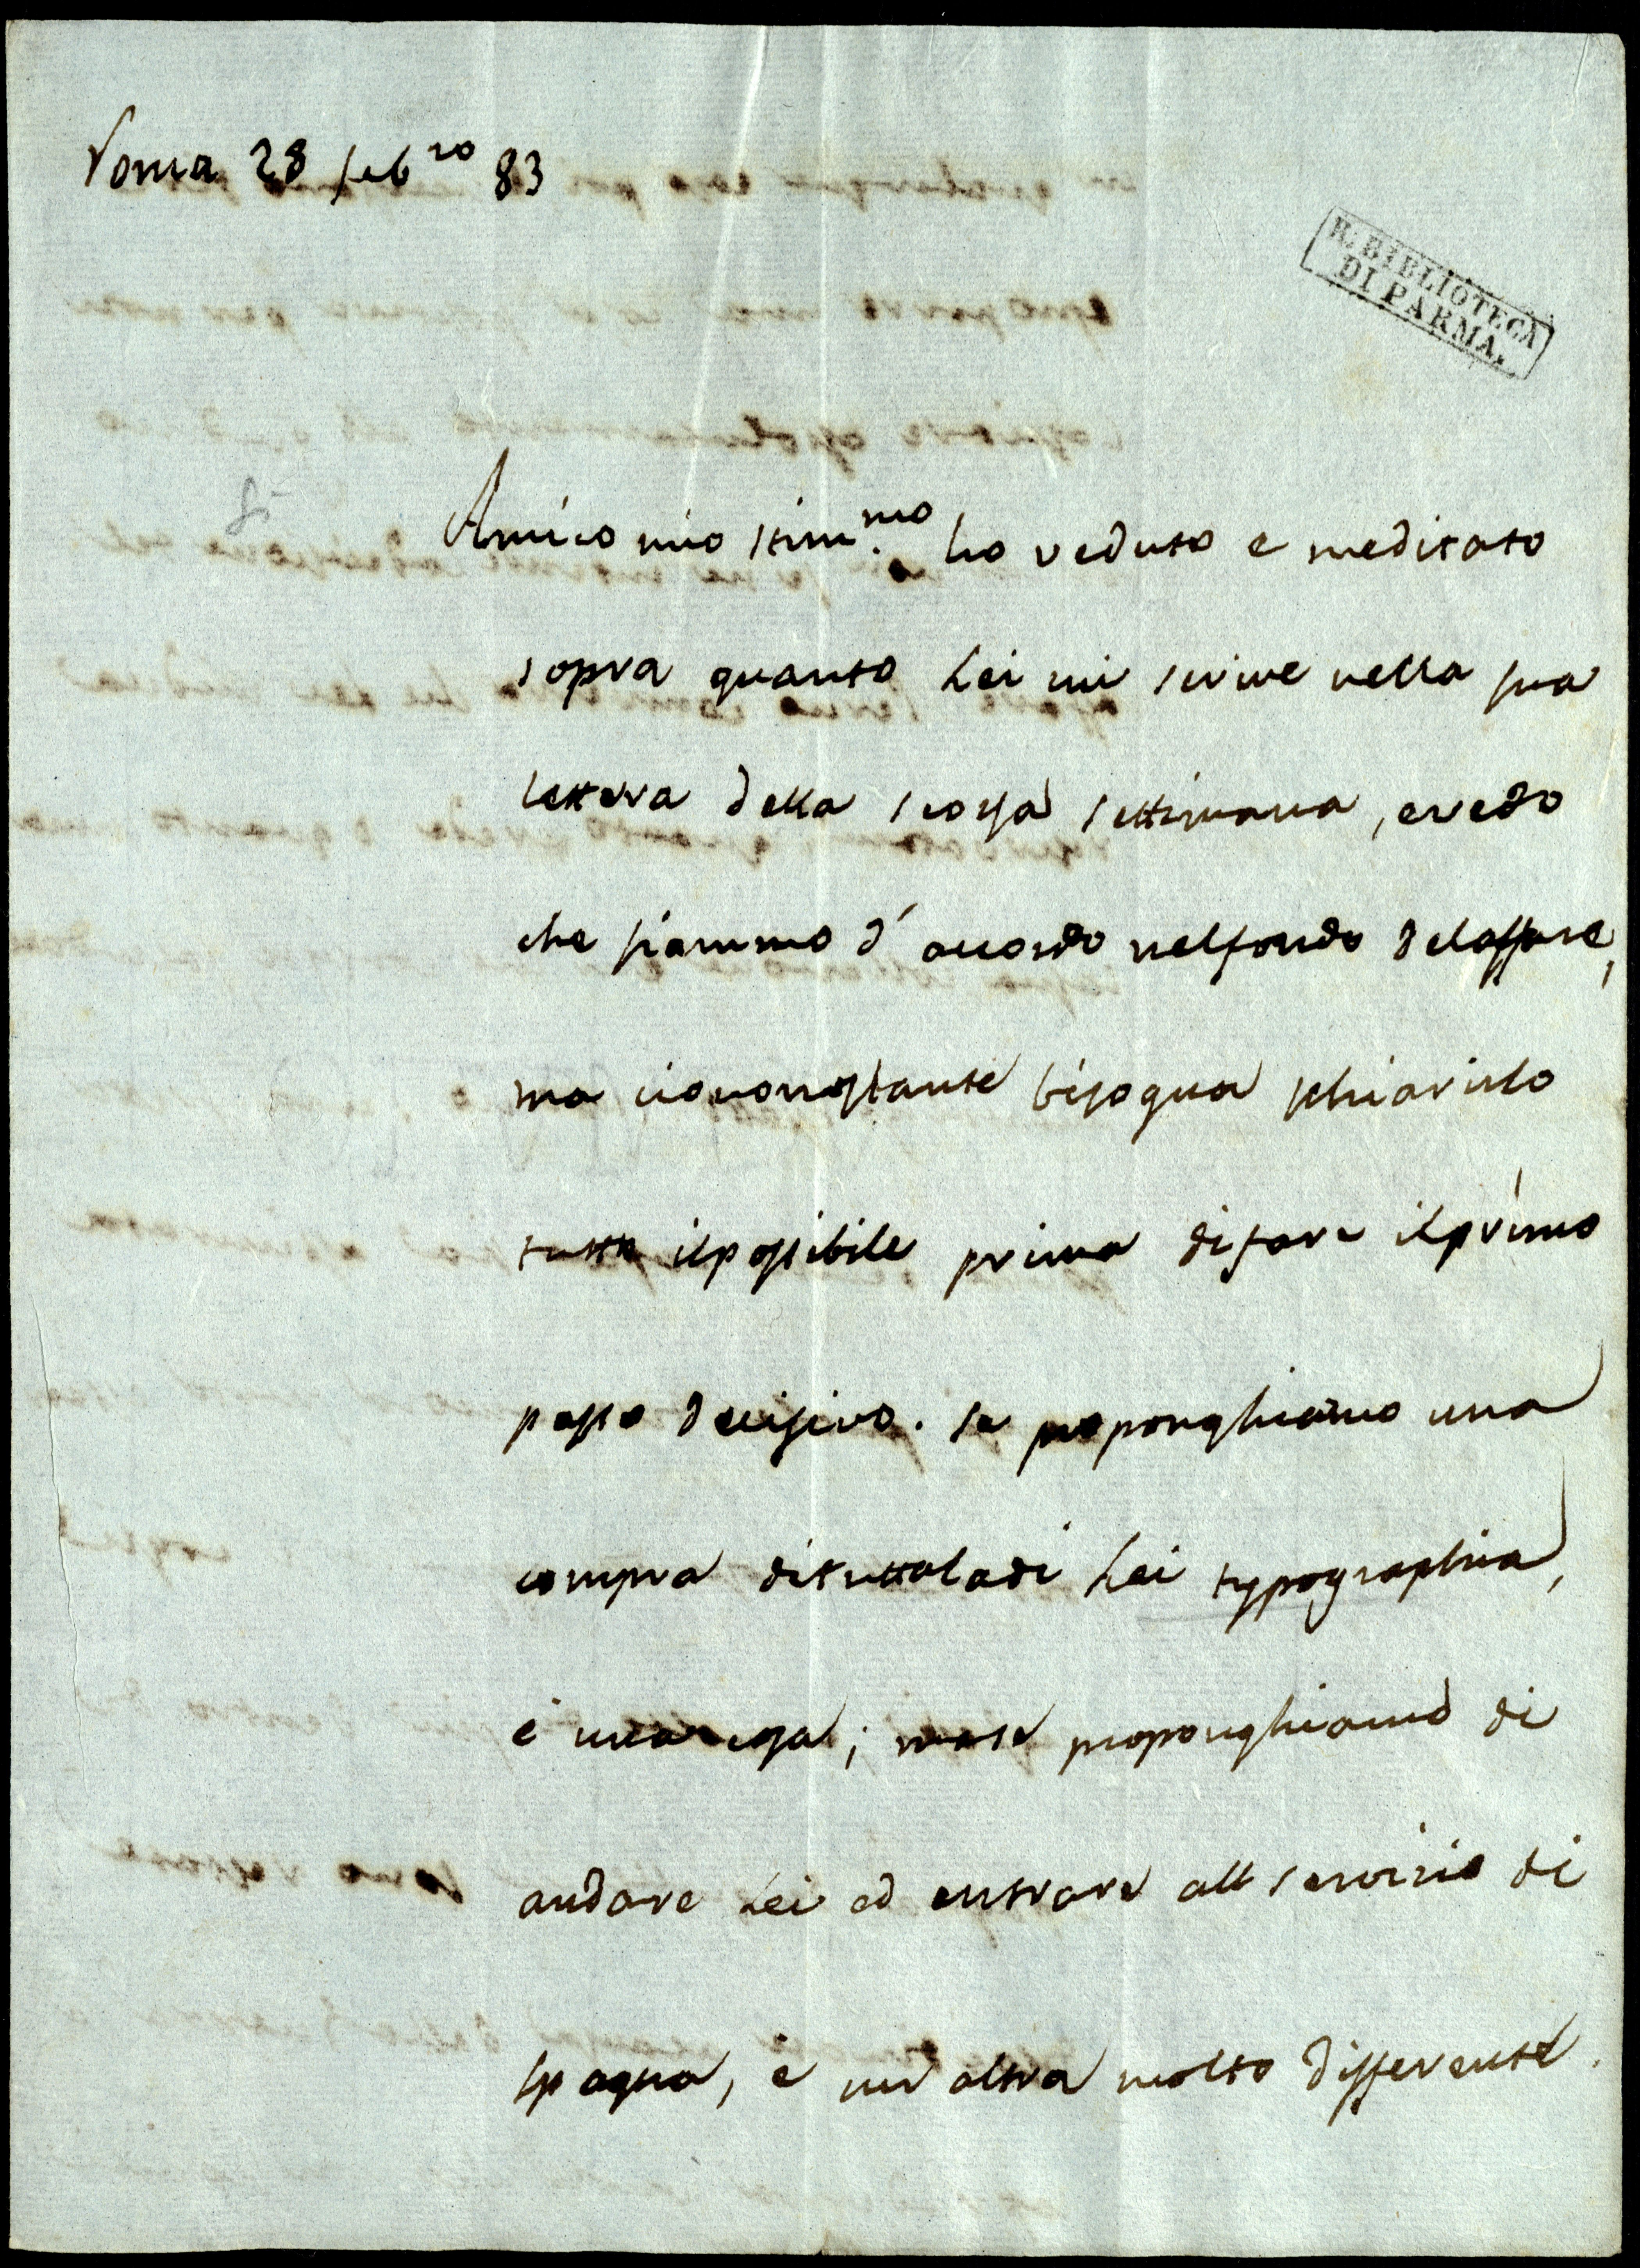 Roma 28 feb.ro 83
R. BIBLIOTECA
DI PARMA.
Amico mio stim.mo ho veduto e meditato
sopra quanto Lei mi scrive nella sua
lettera della scorsa settimana, credo
che siammo d'accordo nel fondo del affare,
ma ciononostante bisogna schiarirlo
tutto il possibile prima di fare il primo
passo decisivo. se proponghiamo una
compra di tutta la di Lei typographia,
è una cosa; ma se proponghiamo di
andare Lei ed entrare all servizio di
spagna, è un altra molto differente.